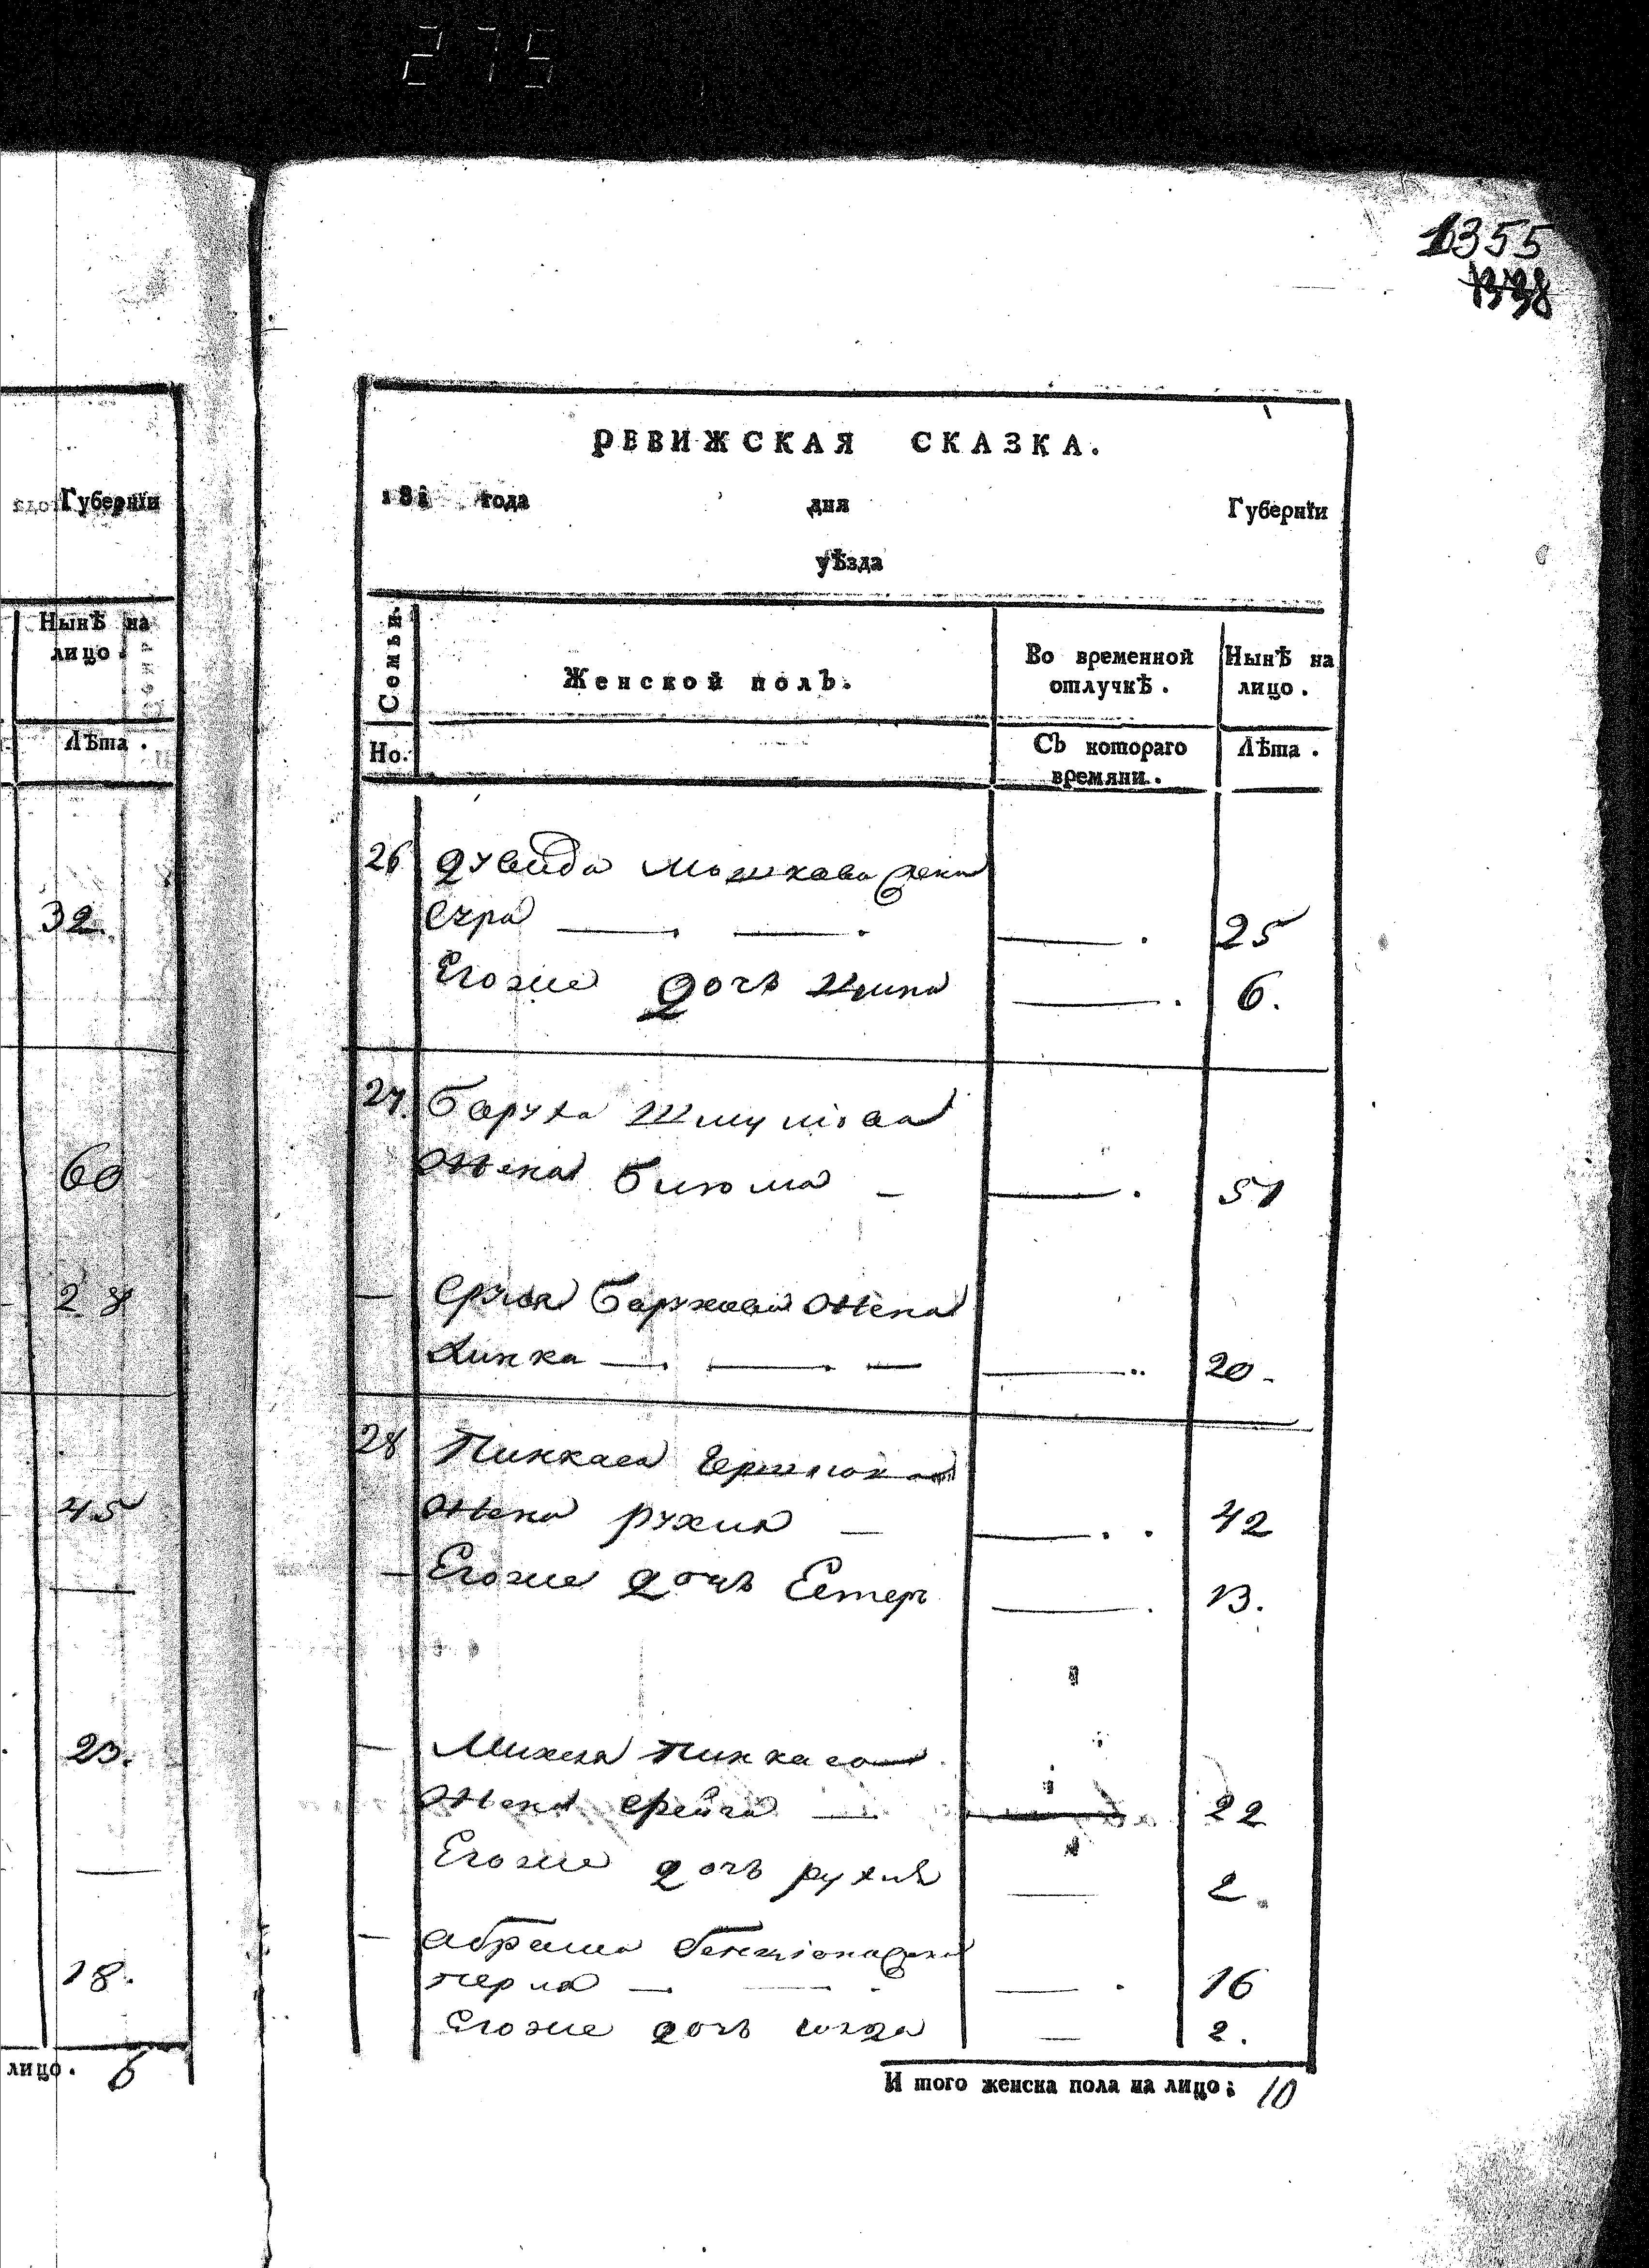 275
1355
1338
Губернїи
Нынѣ на
лицо.
Лѣта.
32.
60
28
45
23.
18.
лицо. 6
РЕВИЖСКАЯ СКАЗКА.
181 года дня Губернїи
уѣзда
Семьи. Женской полъ. Во временной отлучкѣ. Нынѣ на лицо.
Но. Съ котораго времяни. Лѣта.
26 Дувида Мошкова жена
25
Егоже дочь 6.
27. Баруха Шмулова
жена 51
— Сруля Барухова жена
Динка — — — — 20.
28 Пинкаса Гершкова
жена Рухля — — 42
— Егоже дочь Естер — 13.
— Михеля Пинкаса
жена Фрейга — — 22
Егоже дочь Рухля — 2.
— Абрама Бенционажена
Перля — — — 16
Егоже дочь — 2.
И того женска пола на лицо; 10